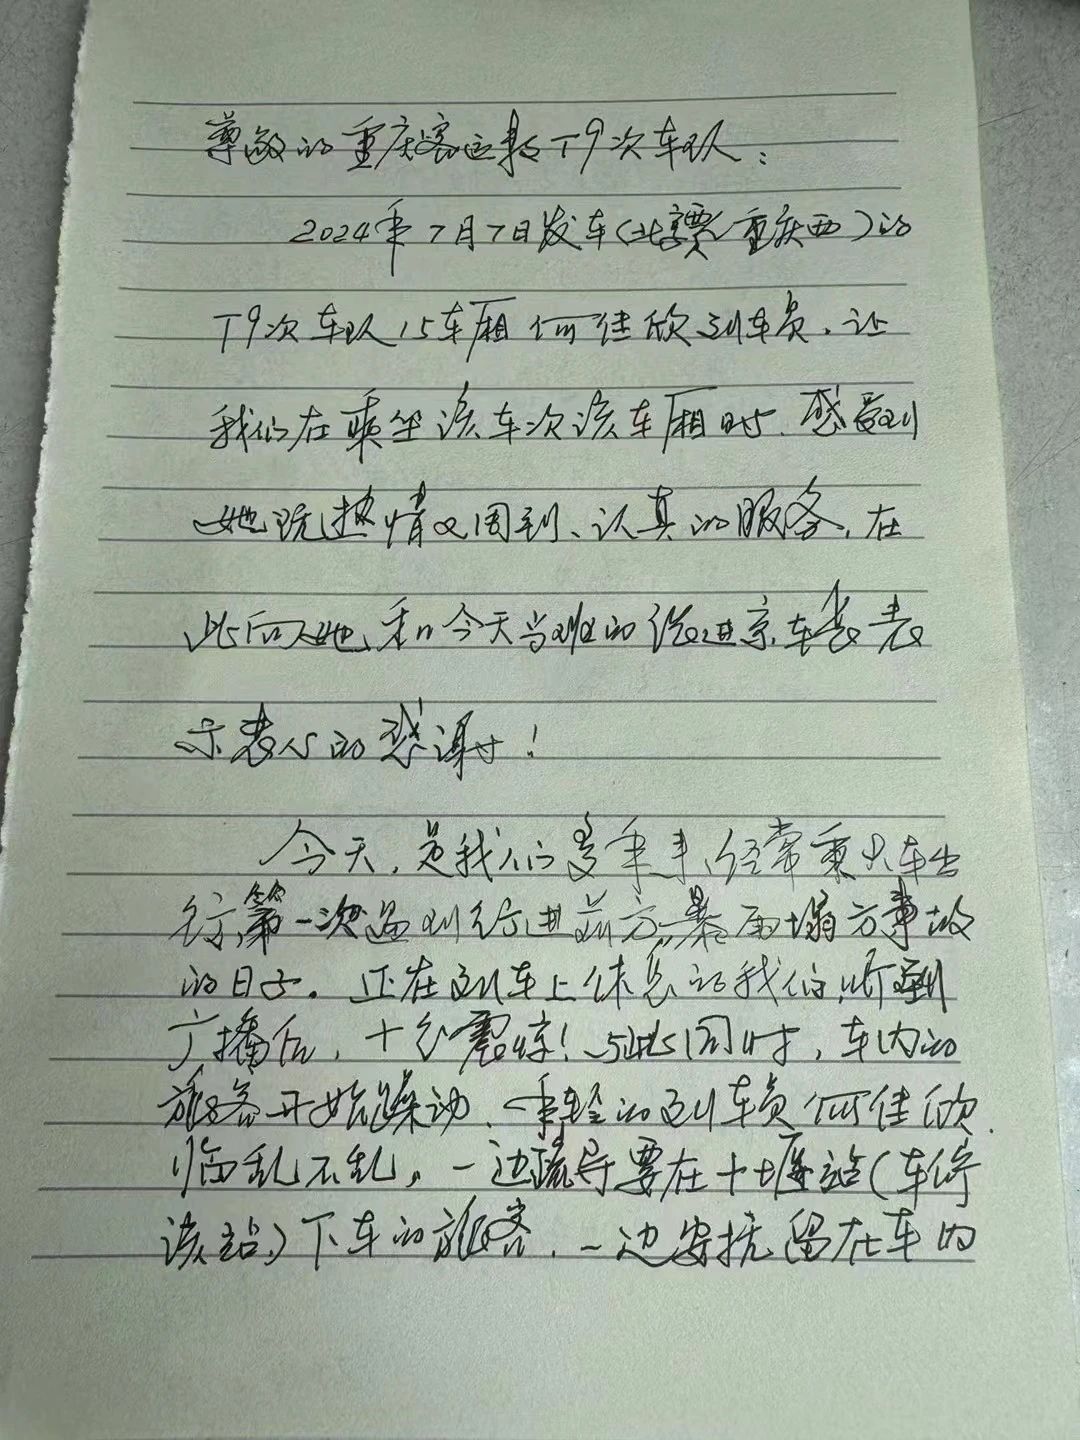 尊敬的重庆客运段T9次车队：
2024年7月7日发车(北京西/重庆西)的
T9次车队15车厢何佳欣列车员，让
我们在乘坐该车次该车厢时，感受到
她既热情又周到、认真的服务，在
此向她和今天当班的 进京车长表
示衷心的感谢！
今天，是我们多年来，经常乘火车出
行，第一次遇到行进前方暴雨塌方事故
的日子。正在列车上休息的我们，听到
广播后，十分震惊！与此同时，车内的
旅客开始躁动，年轻的列车员何佳欣
临乱不乱，一边疏导要在十堰站(车停
该站)下车的旅客，一边安抚留在车内